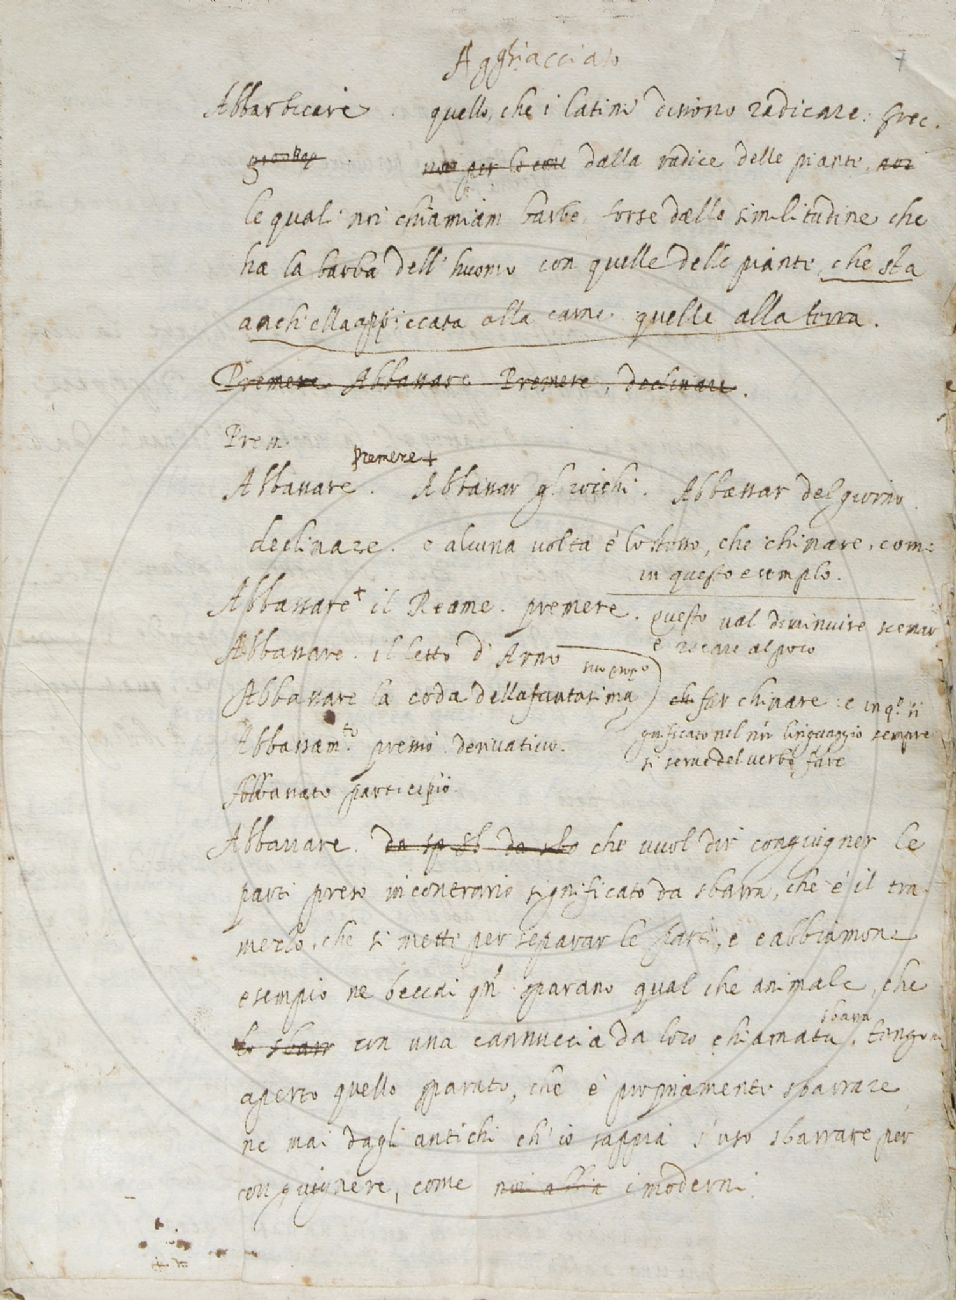 Agghiacciato
7
Abbarbicare. quello, che i latini dissono radicare: Grec.
dalla radice delle piante,
le quali noi chiamiam barbe forse dalla similitudine che
ha la barba dell'huomo con quelle delle piante, che sta
anch'ella appiccata alla carne quelle alla terra.
Premere Abbassare Premere, declinare.
Prem.
premere+
Abbassare. Abbassar gl'occhi. Abbassar del giorno
declinare. e alcuna volta è lo stesso, che chinare, come
in questo esemplo.
Abbassare+ il Reame. premere. questo val diminuire scemare
e recare al poco
Abbassare. il letto d'Arno
Abbassare la coda della fantasima far chinare: e in q.o si
gnificato nel nro linguaggio sempre
si serve del verbo fare
Abbassam.to premo derivativo.
Abbassato participio
Abbarrare. che vuol dir congiugner le
parti preso in contrario significato da sbarra, che è il tra
mezzo, che si mette per separar le parti, e e abbiamone
esempio ne beccai qn sparano qual che animale, che
lo sbarr con una cannuccia da loro chiamata sbarra, tengon
aperto quello sparato, che è propiamente sbarrare
ne mai dagli antichi ch'io sappia s'uso sbarrare per
congiugnere, come i moderni.